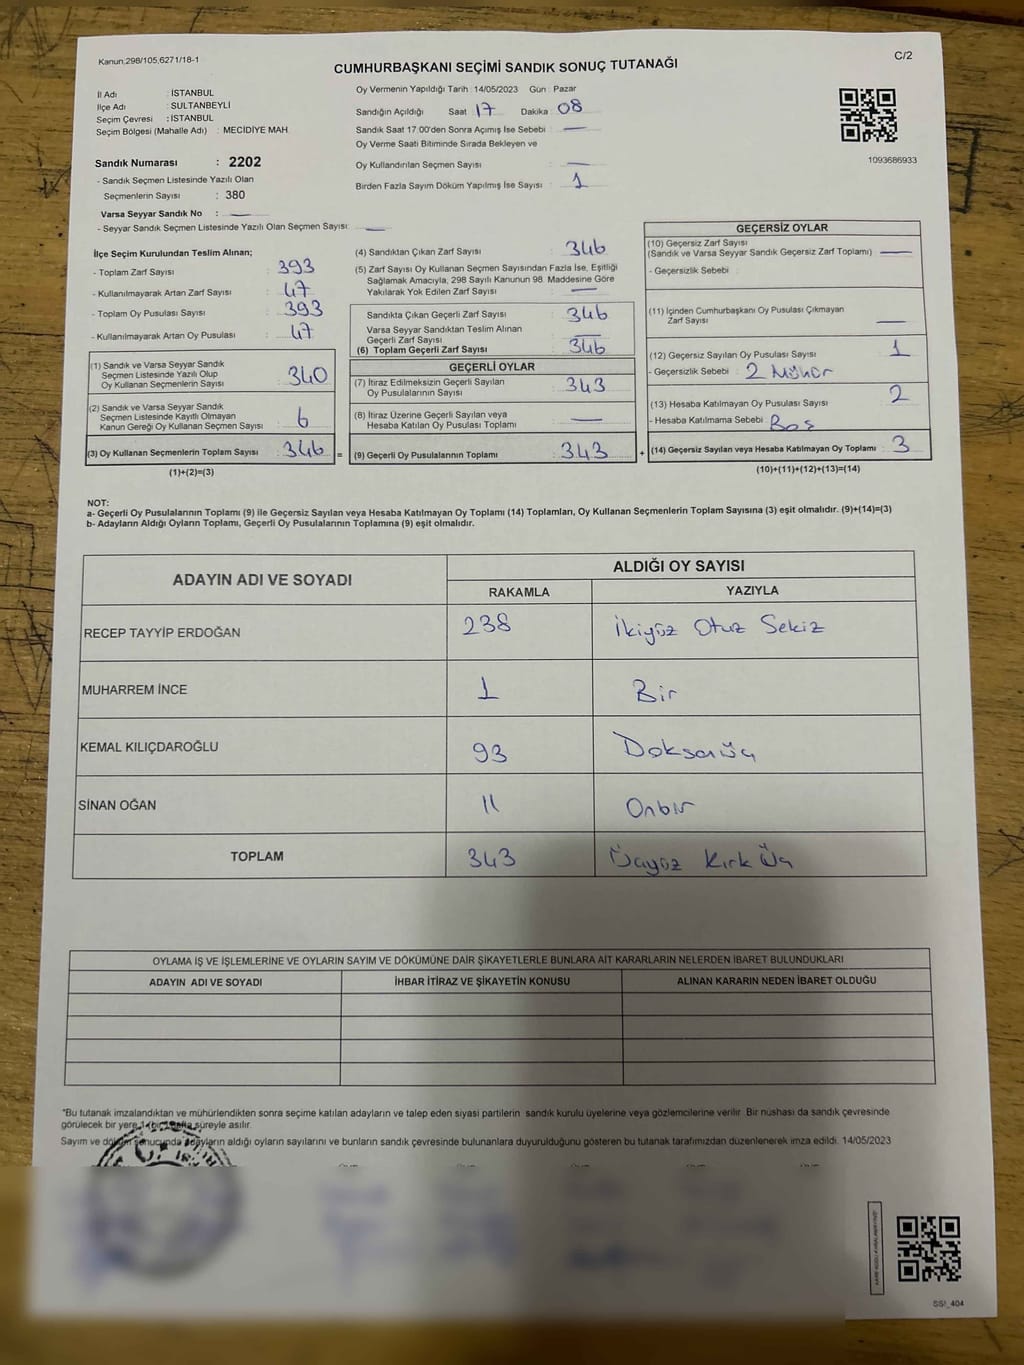 Kanun,298/105,6271/18-1
C/2
CUMHURBAŞKANI SEÇİMİ SANDIK SONUÇ TUTANAĞI
İl Adı : İSTANBUL
İlçe Adı : SULTANBEYLİ
Seçim Çevresi : İSTANBUL
Seçim Bölgesi (Mahalle Adı) : MECİDİYE MAH.
Sandık Numarası : 2202
- Sandık Seçmen Listesinde Yazılı Olan
Seçmenlerin Sayısı : 380
Varsa Seyyar Sandık No : —
- Seyyar Sandık Seçmen Listesinde Yazılı Olan Seçmen Sayısı: —
Oy Vermenin Yapıldığı Tarih : 14/05/2023 Gün : Pazar
Sandığın Açıldığı Saat 17 Dakika 08
Sandık Saat 17:00'den Sonra Açımış İse Sebebi : —
Oy Verme Saati Bitiminde Sırada Bekleyen ve
Oy Kullandırılan Seçmen Sayısı : —
Birden Fazla Sayım Döküm Yapılmış İse Sayısı : 1
1093686933
İlçe Seçim Kurulundan Teslim Alınan;
- Toplam Zarf Sayısı : 393
- Kullanılmayarak Artan Zarf Sayısı : 47
- Toplam Oy Pusulası Sayısı : 393
- Kullanılmayarak Artan Oy Pusulası : 47
(1) Sandık ve Varsa Seyyar Sandık
Seçmen Listesinde Yazılı Olup
Oy Kullanan Seçmenlerin Sayısı : 340
(2) Sandık ve Varsa Seyyar Sandık
Seçmen Listesinde Kayıtlı Olmayan
Kanun Gereği Oy Kullanan Seçmen Sayısı : 6
(3) Oy Kullanan Seçmenlerin Toplam Sayısı : 346 =
(1)+(2)=(3)
(4) Sandıktan Çıkan Zarf Sayısı : 346
(5) Zarf Sayısı Oy Kullanan Seçmen Sayısından Fazla İse, Eşitliği
Sağlamak Amacıyla, 298 Sayılı Kanunun 98. Maddesine Göre
Yakılarak Yok Edilen Zarf Sayısı : —
Sandıkta Çıkan Geçerli Zarf Sayısı : 346
Varsa Seyyar Sandıktan Teslim Alınan
Geçerli Zarf Sayısı : —
(6) Toplam Geçerli Zarf Sayısı : 346
GEÇERLİ OYLAR
(7) İtiraz Edilmeksizin Geçerli Sayılan
Oy Pusulalarının Sayısı : 343
(8) İtiraz Üzerine Geçerli Sayılan veya
Hesaba Katılan Oy Pusulası Toplamı : —
(9) Geçerli Oy Pusulalarının Toplamı : 343 +
GEÇERSİZ OYLAR
(10) Geçersiz Zarf Sayısı
(Sandık ve Varsa Seyyar Sandık Geçersiz Zarf Toplamı) : —
- Geçersizlik Sebebi :
(11) İçinden Cumhurbaşkanı Oy Pusulası Çıkmayan
Zarf Sayısı : —
(12) Geçersiz Sayılan Oy Pusulası Sayısı : 1
- Geçersizlik Sebebi : 2 Mühür
(13) Hesaba Katılmayan Oy Pusulası Sayısı : 2
- Hesaba Katılmama Sebebi : Boş
(14) Geçersiz Sayılan veya Hesaba Katılmayan Oy Toplamı : 3
(10)+(11)+(12)+(13)=(14)
NOT:
a- Geçerli Oy Pusulalarının Toplamı (9) ile Geçersiz Sayılan veya Hesaba Katılmayan Oy Toplamı (14) Toplamları, Oy Kullanan Seçmenlerin Toplam Sayısına (3) eşit olmalıdır. (9)+(14)=(3)
b- Adayların Aldığı Oyların Toplamı, Geçerli Oy Pusulalarının Toplamına (9) eşit olmalıdır.
ADAYIN ADI VE SOYADI ALDIĞI OY SAYISI
RAKAMLA YAZIYLA
RECEP TAYYİP ERDOĞAN 238 İkiyüz Otuz Sekiz
MUHARREM İNCE 1 Bir
KEMAL KILIÇDAROĞLU 93 Doksanüç
SİNAN OĞAN 11 Onbir
TOPLAM 343 Üçyüz Kırk Üç
OYLAMA İŞ VE İŞLEMLERİNE VE OYLARIN SAYIM VE DÖKÜMÜNE DAİR ŞİKAYETLERLE BUNLARA AİT KARARLARIN NELERDEN İBARET BULUNDUKLARI
ADAYIN ADI VE SOYADI İHBAR İTİRAZ VE ŞİKAYETİN KONUSU ALINAN KARARIN NEDEN İBARET OLDUĞU
*Bu tutanak imzalandıktan ve mühürlendikten sonra seçime katılan adayların ve talep eden siyasi partilerin sandık kurulu üyelerine veya gözlemcilerine verilir. Bir nüshası da sandık çevresinde
görülecek bir yere 1 (bir) hafta süreyle asılır.
Sayım ve döküm sonucunda adayların aldığı oyların sayılarını ve bunların sandık çevresinde bulunanlara duyurulduğunu gösteren bu tutanak tarafımızdan düzenlenerek imza edildi. 14/05/2023
SSİ_404